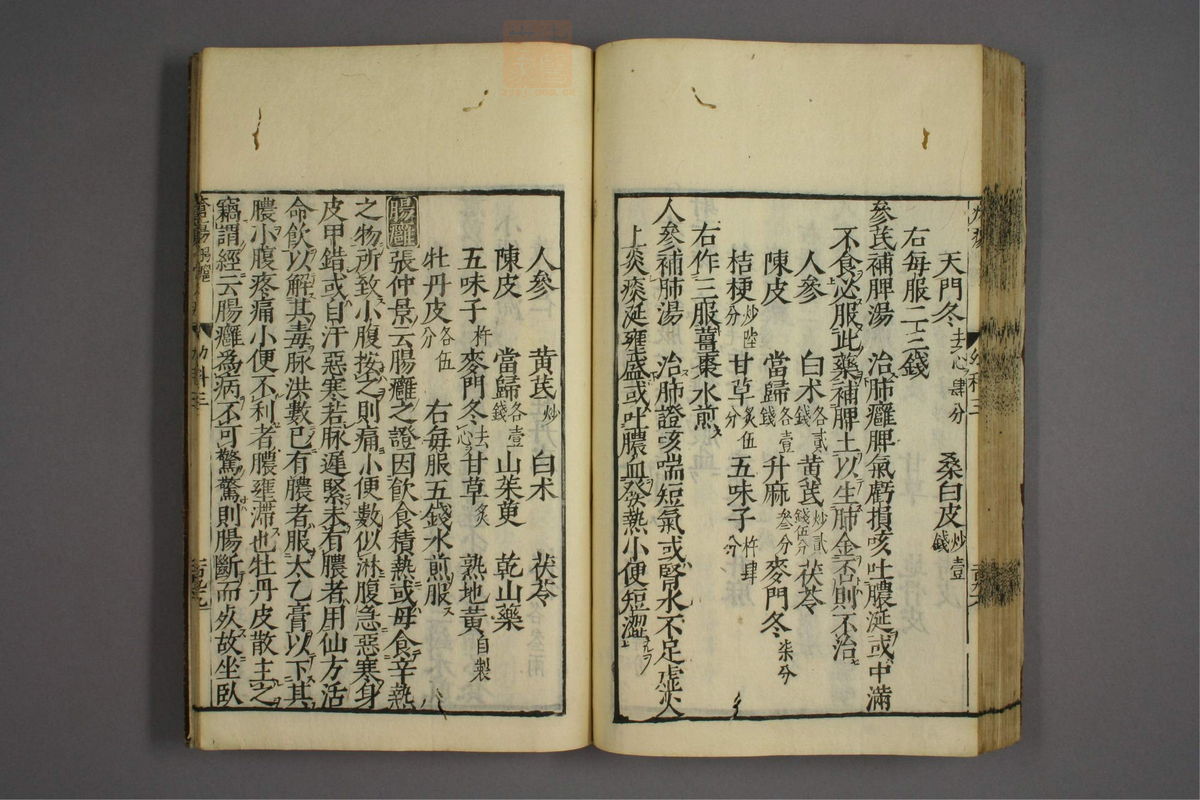 天門冬去心肆分　桑白皮炒壹錢
右每服二三錢
參芪補脾湯　治肺癰脾氣虧損咳吐膿涎或中滿
不食必服此藥補脾土以生肺金否則不治
人參　白朮各貳錢黃芪炒貳錢伍分茯苓
陳皮　當歸各壹錢升麻叁分麥門冬柒分
桔梗炒分甘草炙伍分五味子杵肆分
右作三服薑棗水煎
人參補肺湯　治肺證咳喘短氣或腎水不足虛火
上炎痰涎壅盛或吐膿血發熱小便短澀
人參　黃芪炒　白朮　茯苓
陳皮　當歸各壹錢山茱萸　乾山藥
五味子杵麥門冬去心甘草炙　熟地黃自製
牡丹皮各伍分　右每服五錢水煎服
腸癰　張仲景云腸癰之證因飲食積熱或母食辛熱
之物所致小腹按之則痛小便數似淋腹急惡寒身
皮甲錯或自汗惡寒若脉遲緊未有膿者用仙方活
命飲以解其毒脉洪數已有膿者服大乙膏以下其
膿小腹疼痛小便不利者膿壅滯也牡丹皮散主之
竊謂經云腸癰為病不可驚驚則腸斷而死故坐臥
幼科三